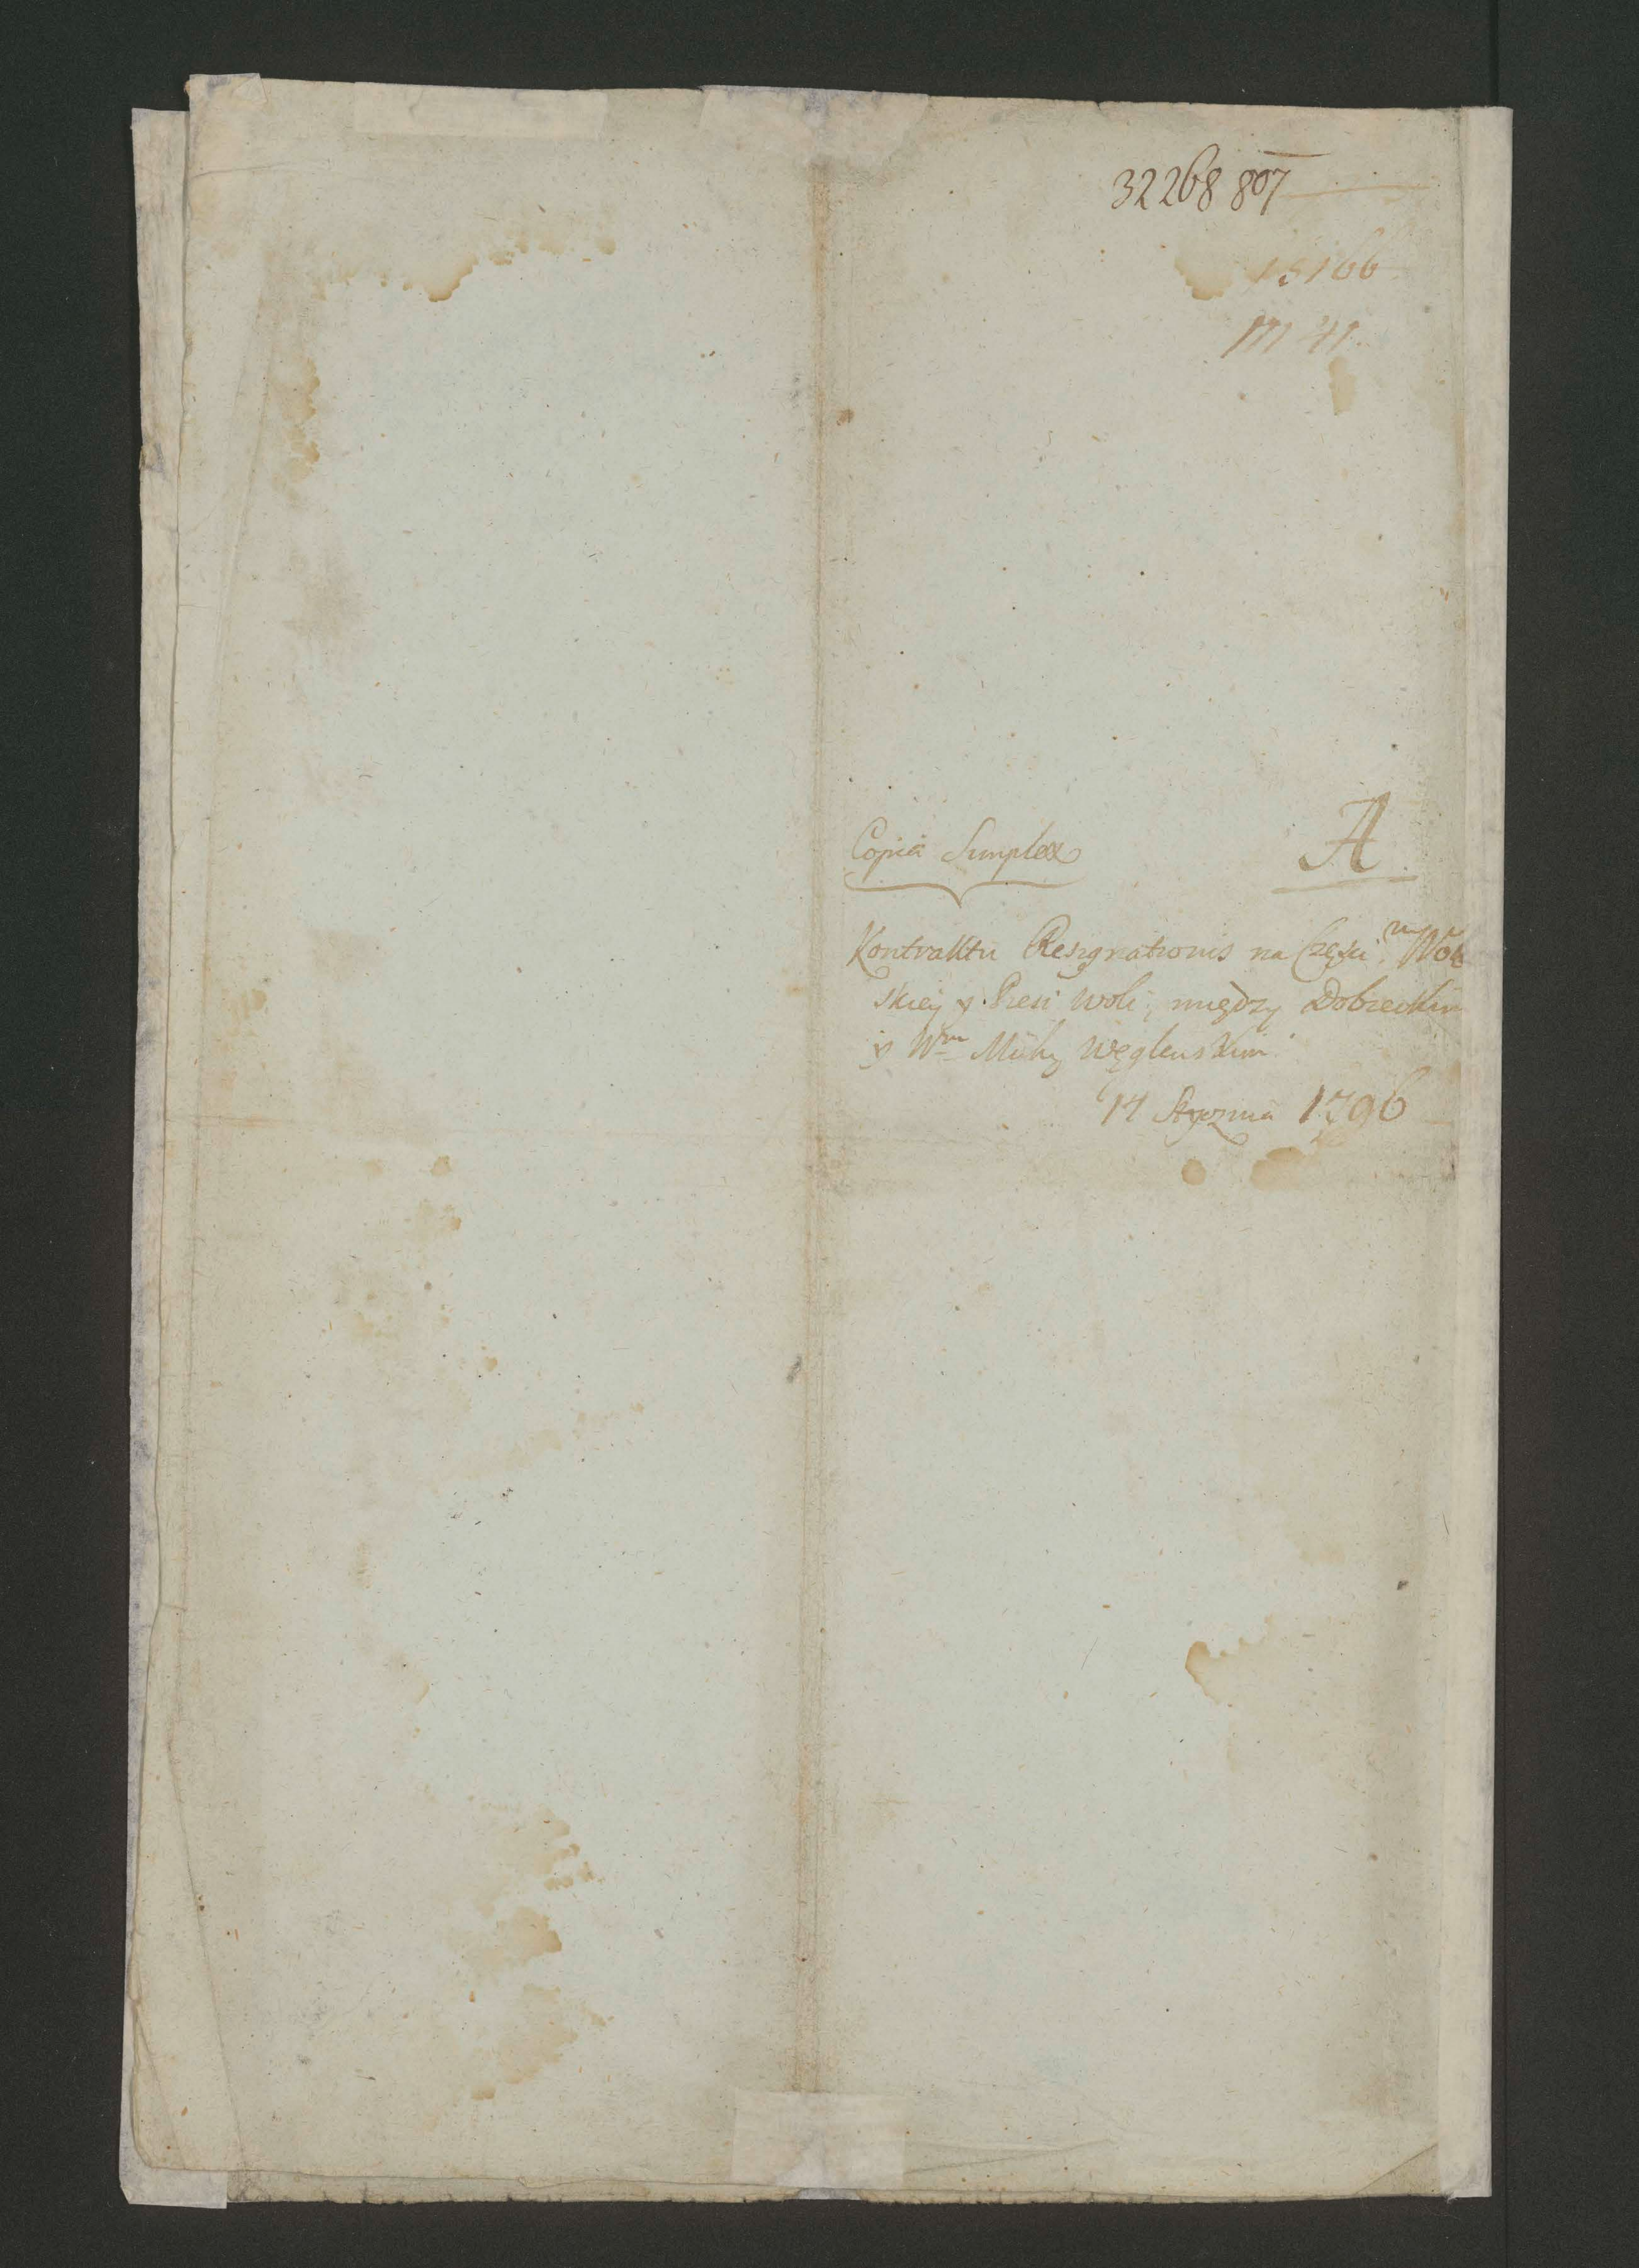 32268 807
15166
M 41.
Copia Simplex
A
Kontraktu Resignationis na Części w Wol
skiey y Woli, między Dobieckim
y Wm Węglenskim
14 Stycznia 1796